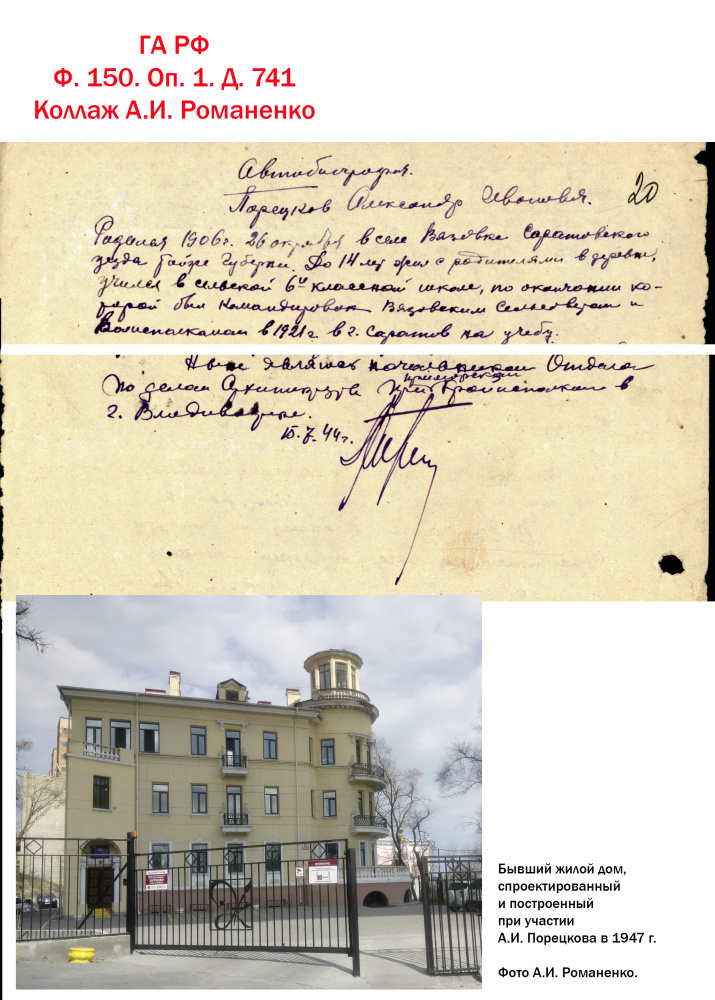 ГА РФ
Ф. 150. Оп. 1. Д. 741
Коллаж А.И. Романенко
Автобиография.
20
Порецков Александр Иванович.
Родился 1906г. 26 октября в селе Вязовке Саратовского
уезда тойже Губернии. До 14 лет жил с родителями в деревне,
учился в сельской 6и классной школе, по окончании ко-
торой был командирован Вязовским Сельсоветом и
Волисполкомом в 1921 г. в г. Саратов на учебу.
Ныне являюсь начальником Отдела
по делам Архитектуры при Приморском Крайисполкоме в
г. Владивостоке.
44 г.
Бывший жилой дом,
спроектированный
и построенный
при участии
А.И. Порецкова в 1947 г.
Фото А.И. Романенко.